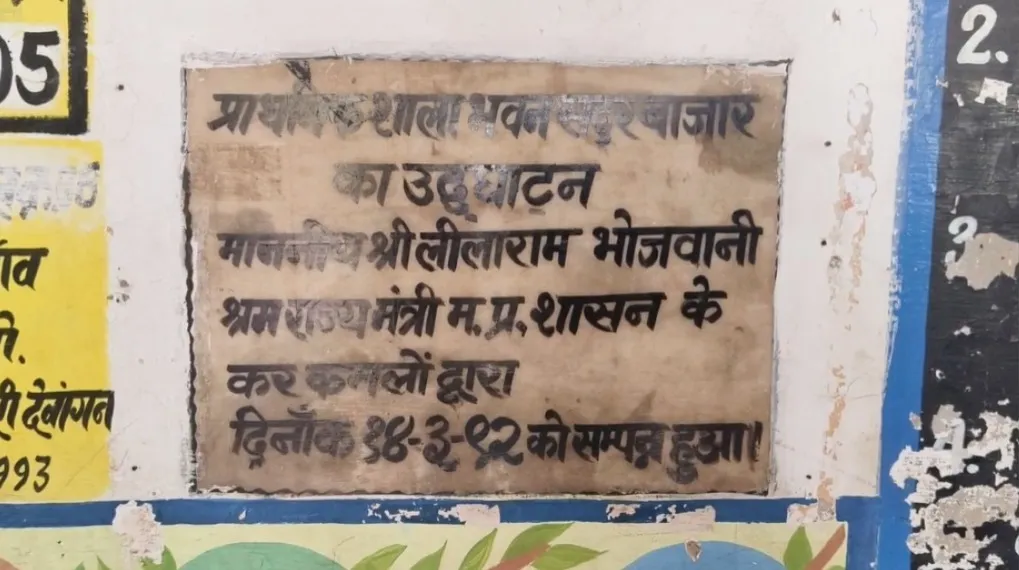 05
प्राथमिक शाला भवन सदर बाजार
का उद्घाटन
माननीय श्री लीलाराम भोजवानी
श्रम राज्य मंत्री म.प्र. शासन के
कर कमलों द्वारा
दिनाँक १४-३-९२ को सम्पन्न हुआ।
देवांगन
993
2.
3
4.